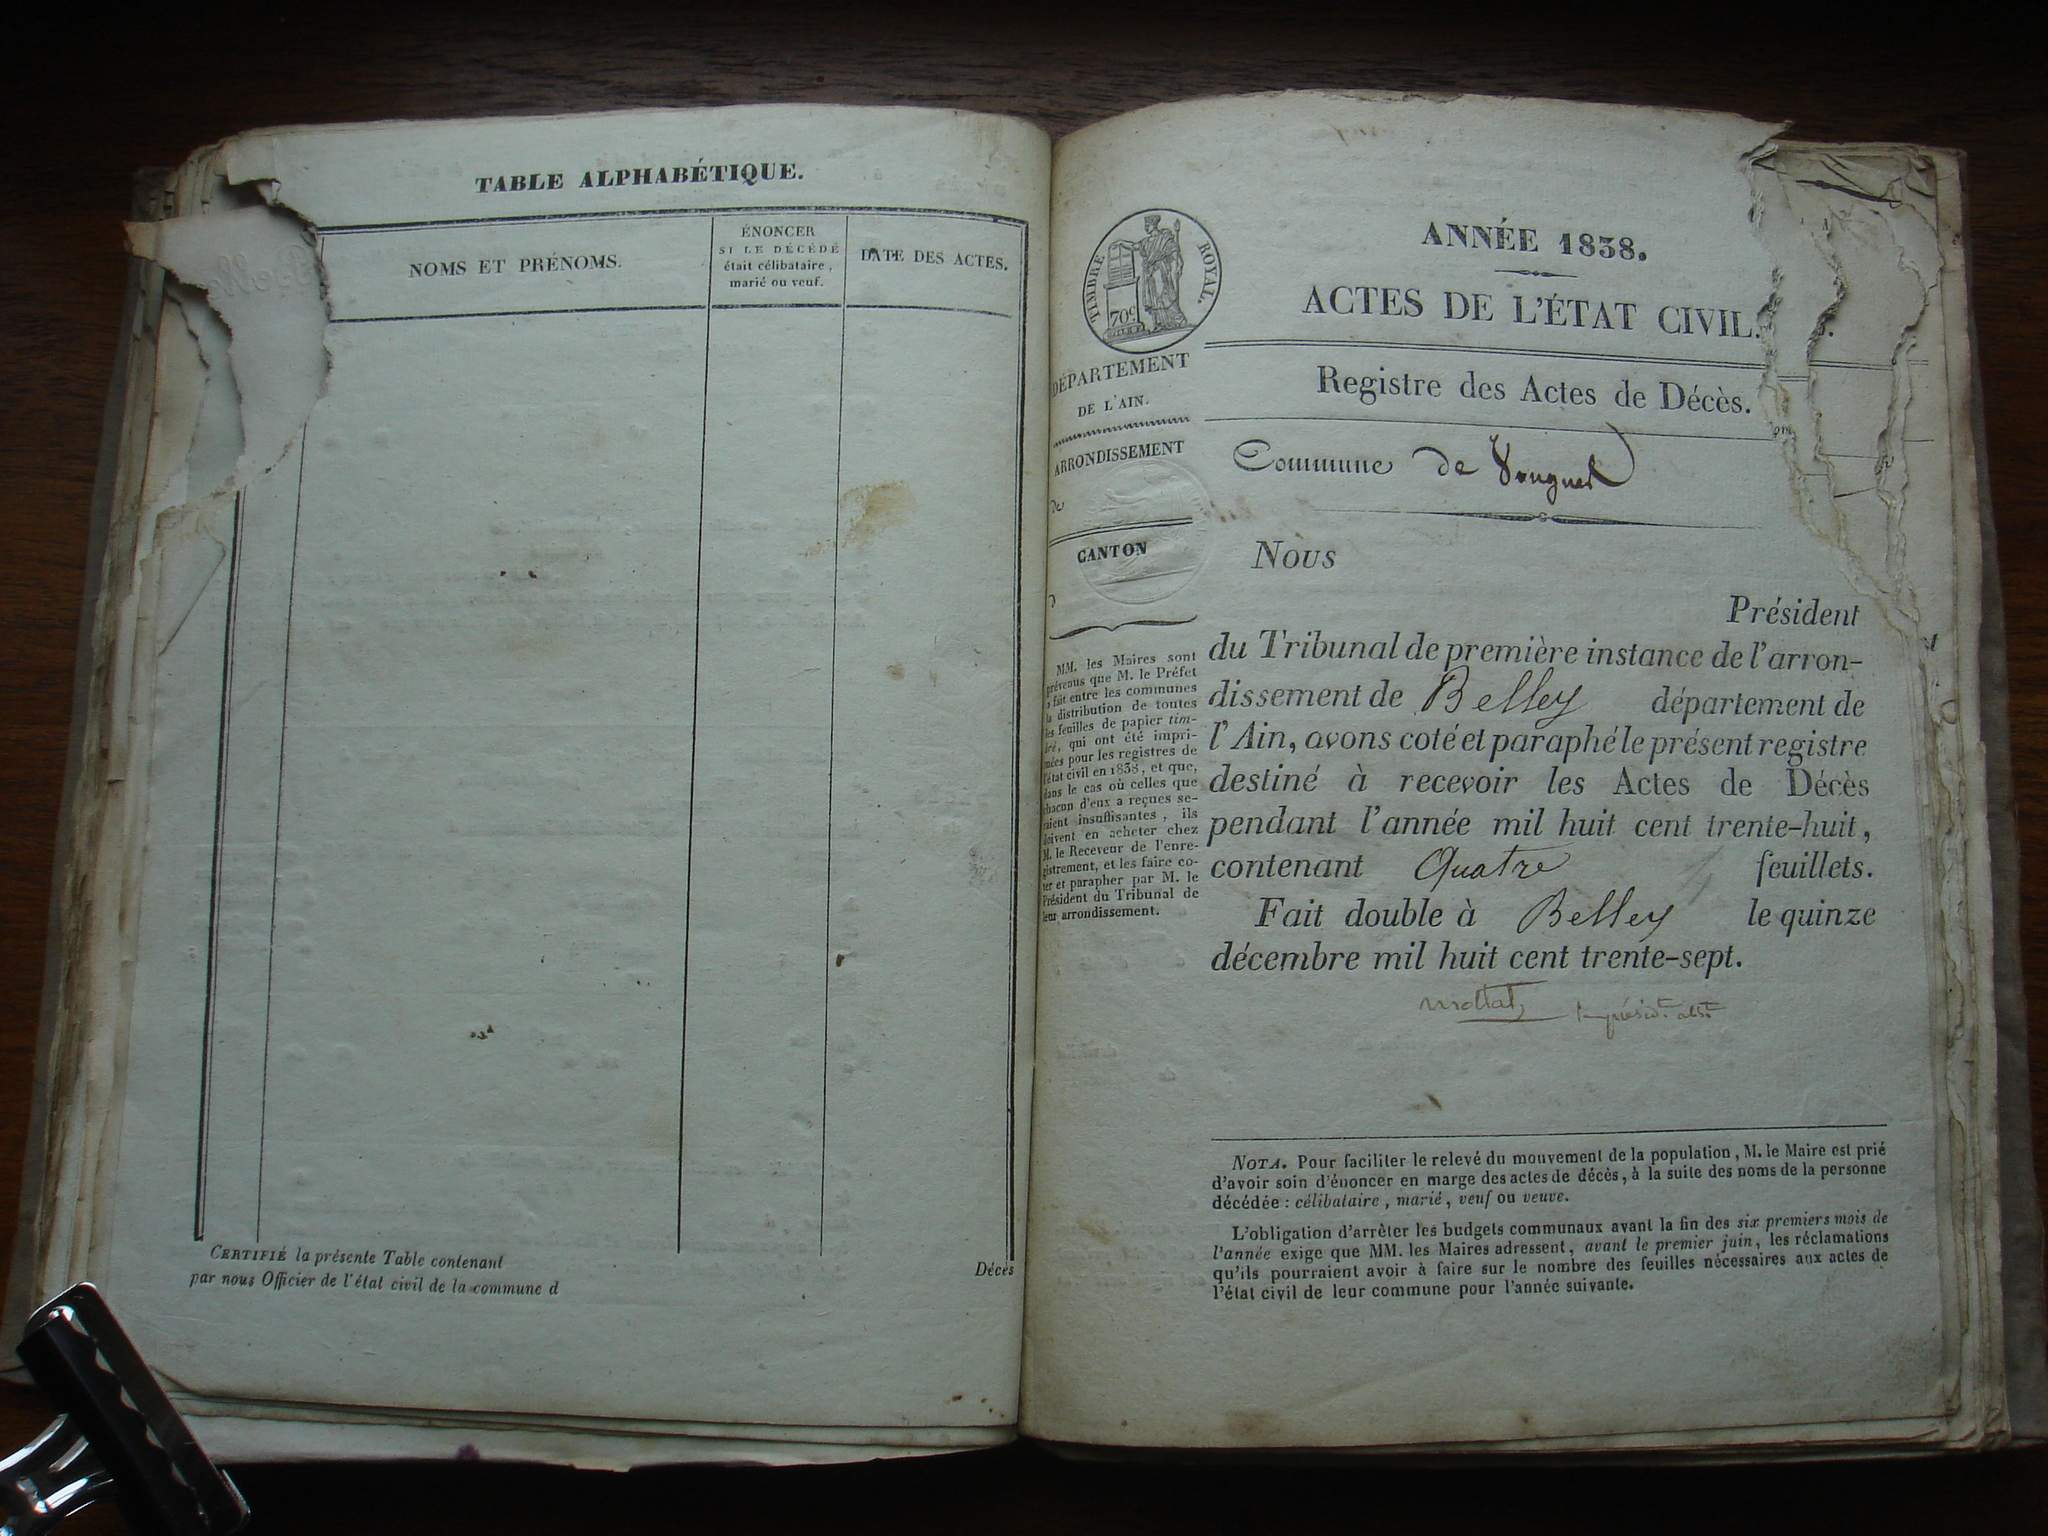 TABLE ALPHABÉTIQUE.
NOMS ET PRÉNOMS.
ÉNONCER
SI LE DÉCÉDÉ
était célibataire,
marié ou veuf.
DATE DES ACTES.
CERTIFIÉ la présente Table contenant
Décès
par nous Officier de l'état civil de la commune d
TIMBRE ROYAL.
70c
DÉPARTEMENT
DE L'AIN.
ARRONDISSEMENT
de
CANTON
d
MM. les Maires sont
prévenus que M. le Préfet
a fait entre les communes
la distribution de toutes
les feuilles de papier tim-
bré, qui ont été impri-
mées pour les registres de
l'état civil en 1838, et que,
dans le cas où celles que
chacun d'eux a reçues se-
raient insuffisantes, ils
doivent en acheter chez
M. le Receveur de l'enre-
gistrement, et les faire co-
ter et parapher par M. le
Président du Tribunal de
leur arrondissement.
ANNÉE 1838.
ACTES DE L'ÉTAT CIVIL.
Registre des Actes de Décès.
Commune de Vongnes
Nous
Président
du Tribunal de première instance de l'arron-
dissement de Belley département de
l'Ain, avons coté et paraphé le présent registre
destiné à recevoir les Actes de Décès
pendant l'année mil huit cent trente-huit,
contenant Quatre feuillets.
Fait double à Belley le quinze
décembre mil huit cent trente-sept.
NOTA. Pour faciliter le relevé du mouvement de la population, M. le Maire est prié
d'avoir soin d'énoncer en marge des actes de décès, à la suite des noms de la personne
décédée : célibataire, marié, veuf ou veuve.
L'obligation d'arrêter les budgets communaux avant la fin des six premiers mois de
l'année exige que MM. les Maires adressent, avant le premier juin, les réclamations
qu'ils pourraient avoir à faire sur le nombre des feuilles nécessaires aux actes de
l'état civil de leur commune pour l'année suivante.